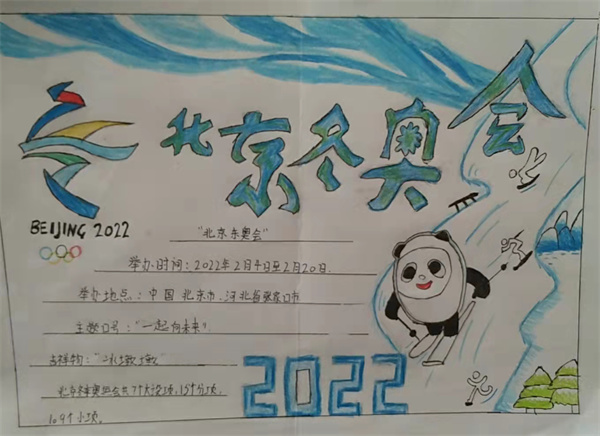 北京冬奥会
BEIJING 2022
"北京冬奥会"
举办时间：2022年2月4日至2月20日.
举办地点：中国 北京市、河北省张家口市
主题口号："一起向未来".
吉祥物："冰墩墩"
北京冬奥会共7个大项,15个分项
109个小项。
2022